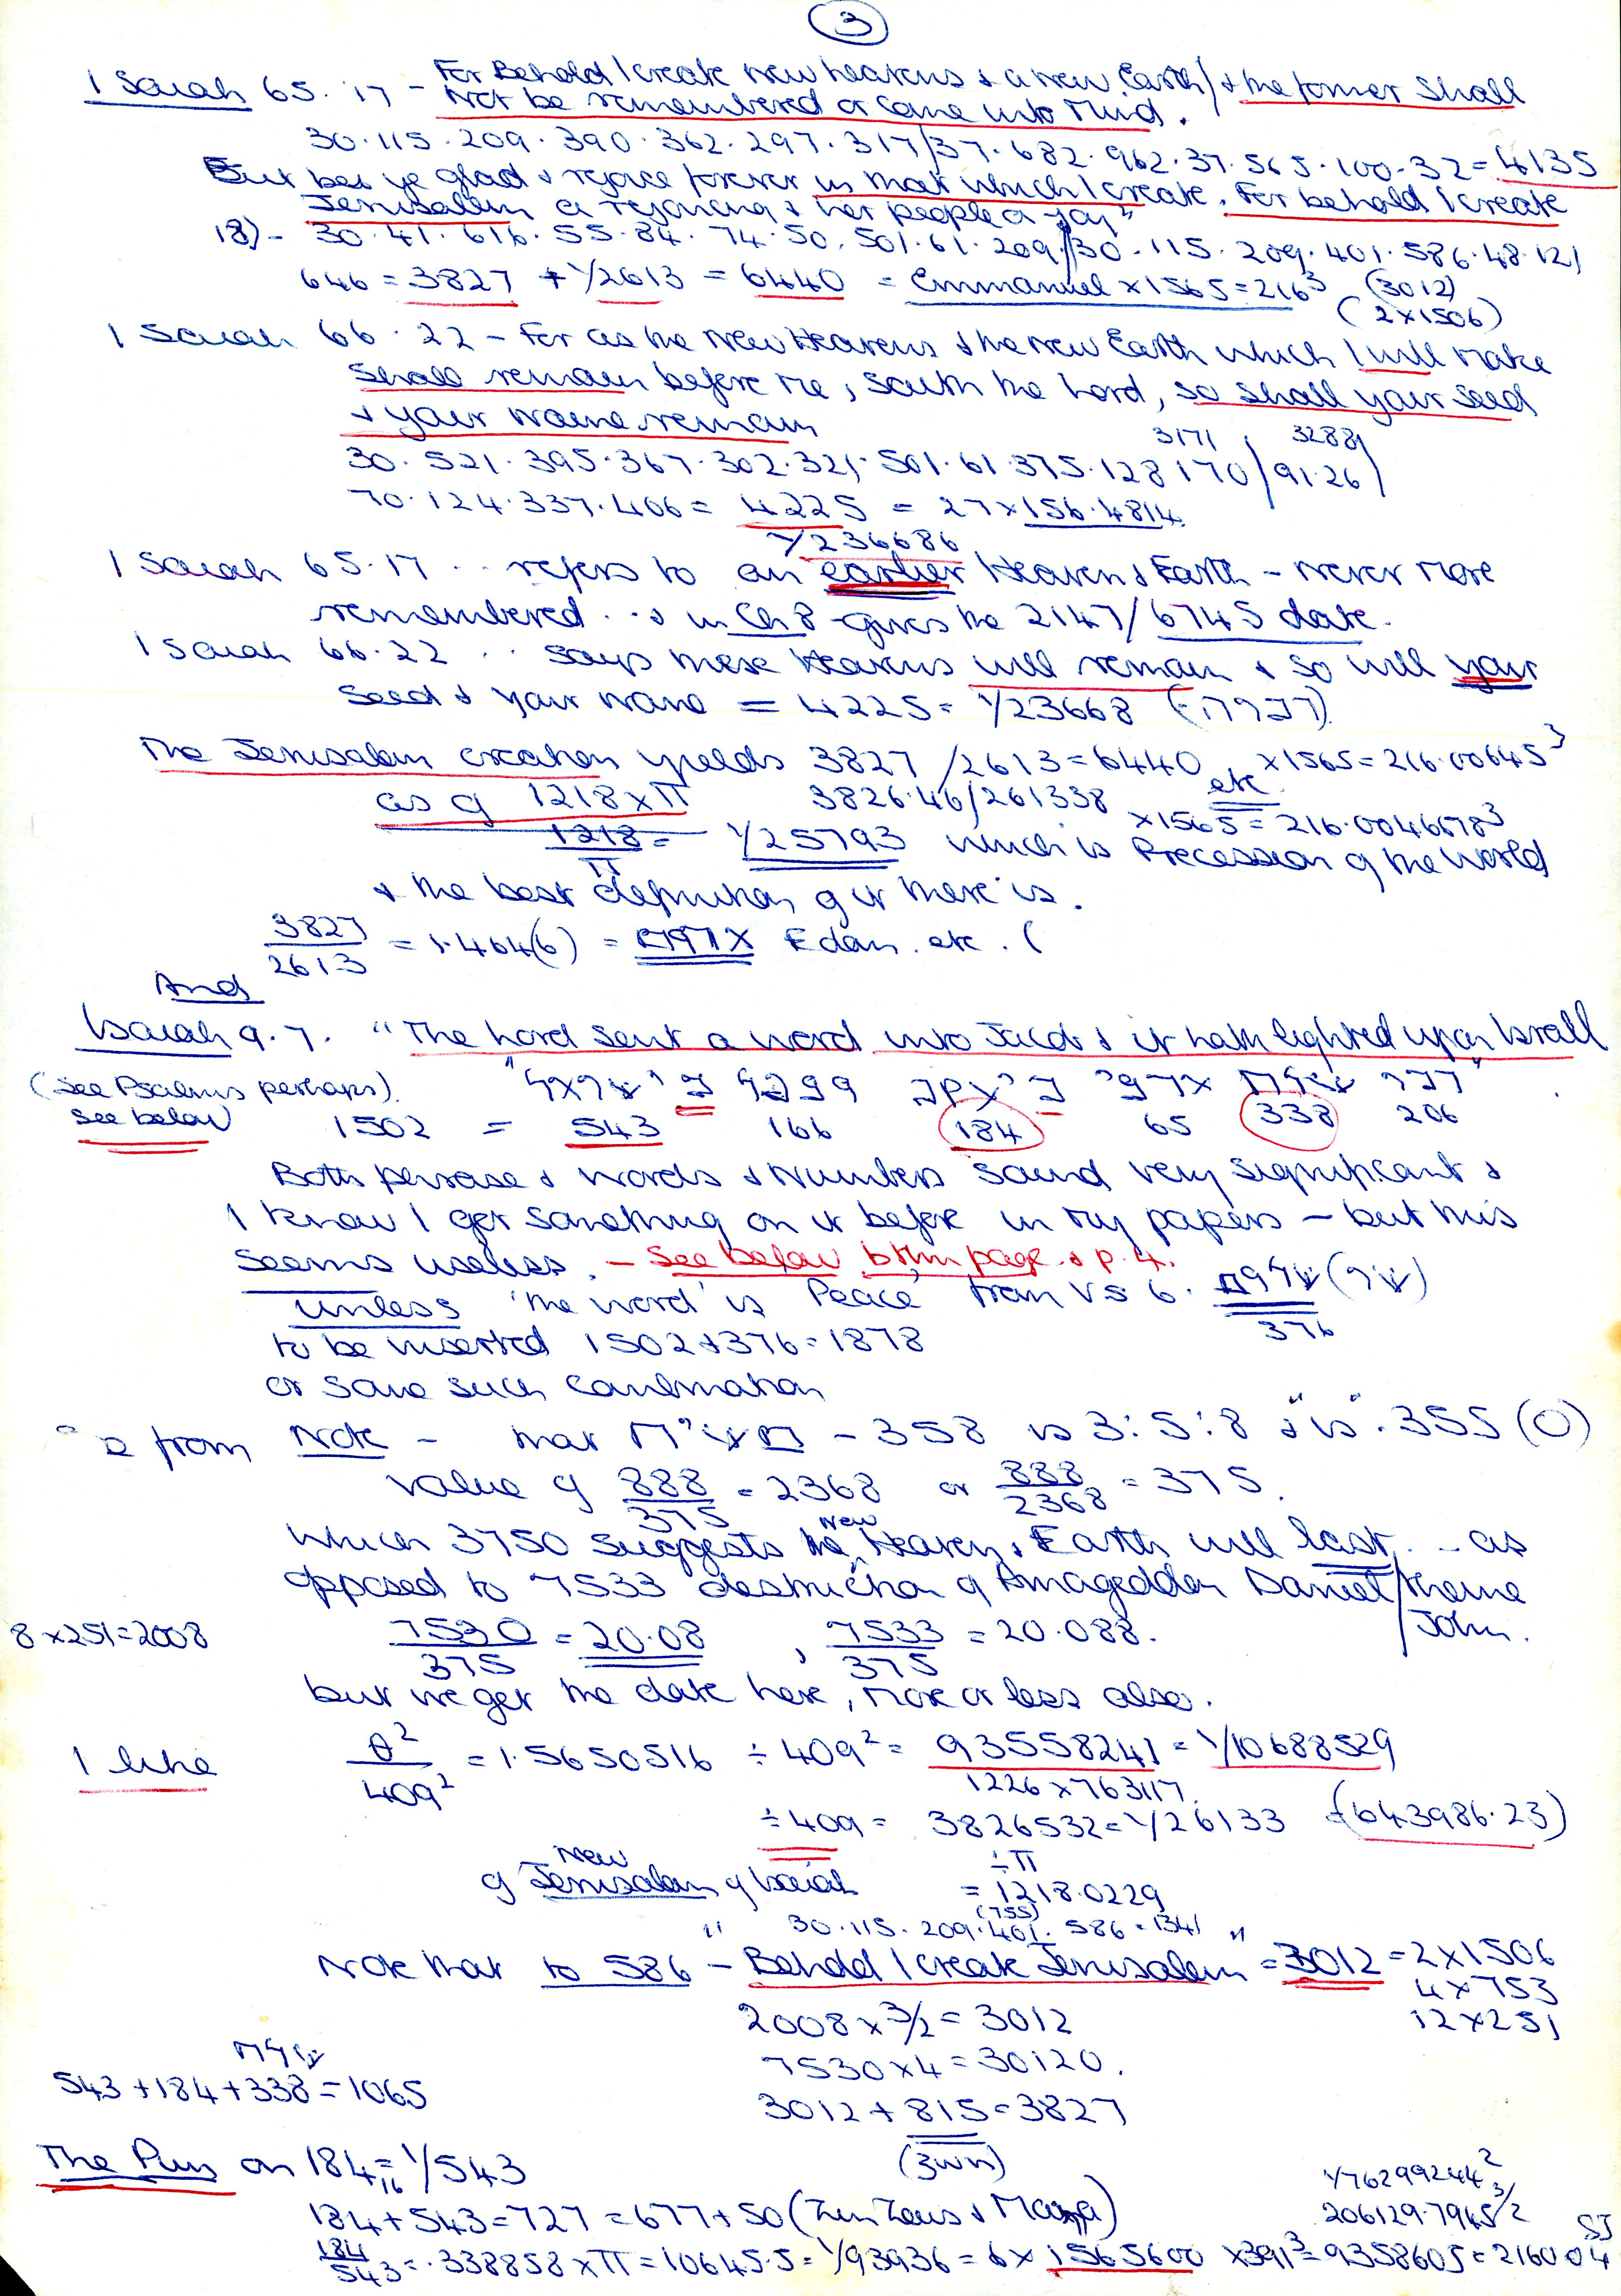 3
Isaiah 65.17 - For Behold I create new heavens & a new Earth / & the former shall
Not be remembered or come into Mind.
30.115.209.390.362.297.317/37.682.962.37.565.100.32=4135
But be ye glad & rejoice forever in that which I create. For behold I create
Jerusalem a rejoicing & her people a joy"
18)- 30.41.616.55.84.74.50.501.61.209/30.115.209.401.586.48.121
646=3827 + 1/2613 = 6440 = Emmanuel x1565=216³ (3012)
(2x1506)
Isaiah 66.22 - For as the New Heavens & the New Earth which I will Make
Shall remain before Me, saith the Lord, so shall your Seed
& your Name remain
3171 3288
30.521.395.367.302.321.501.61.375.128 170/91.26/
70.124.337.406= 4225 = 27x156.4814
1/236686
Isaiah 65.17 .. refers to an earlier Heaven & Earth - never More
remembered .. & in Ch 8 gives the 2147/6745 date.
Isaiah 66.22 .. says these Heavens will remain & so will your
Seed & your Name = 4225 = 1/23668
The Jerusalem creation yields 3827/2613=6440 x1565=216.00645³
as of 1218xπ 3826.46/261338 etc x1565=216.0046678³
1218/π = 1/25793 which is Precession of the World
& the best definition of it there is.
3827/2613 = 1.464(6) = Edom. etc. (
And
Isaiah 9.7. "The Lord Sent a word into Jacob & it hath lighted upon Israel
(See Psalms perhaps)
See below 1502 = 543 166 184 65 338 206
Both phrase & words & Numbers sound very significant &
I know I get something on it before in my papers - but this
seems useless. - See below bttm page & p.4.
unless 'the word' is 'Peace' from Vs 6.
376
to be inserted 1502+376=1878
or some such combination
from Note - that - 358 is 3:5:8 & "is" .355(0)
value of 888/375 = 2368 or 888/2368 = 375.
which 3750 suggests the New Heaven & Earth will last.. - as
opposed to 7533 destruction of Armageddon Daniel/theme
John.
8x251=2008 7530/375 = 20.08 , 7533/375 = 20.088.
but we get the date here, more or less also.
I like θ²/409² = 1.5650516 ÷ 409² = 93558241 = 1/10688529
1226x763117
÷409 = 3826532=1/26133 (643986.23)
of New Jerusalem of Isaiah ÷π
= 1218.0229
(755)
" 30.115.209.401.586=1341 "
Note that to 586 - Behold I create Jerusalem = 3012 = 2x1506
4x753
12x251
2008 x 3/2 = 3012
7530x4=30120.
543+184+338=1065
3012+815=3827
The Puns on 184= 1/543
184+543=727=677+50
1/76299244²
206129.7965 3/2
184/543=.338858xπ=10645.5=1/93936=6x1565600 x391³=9358605=216004